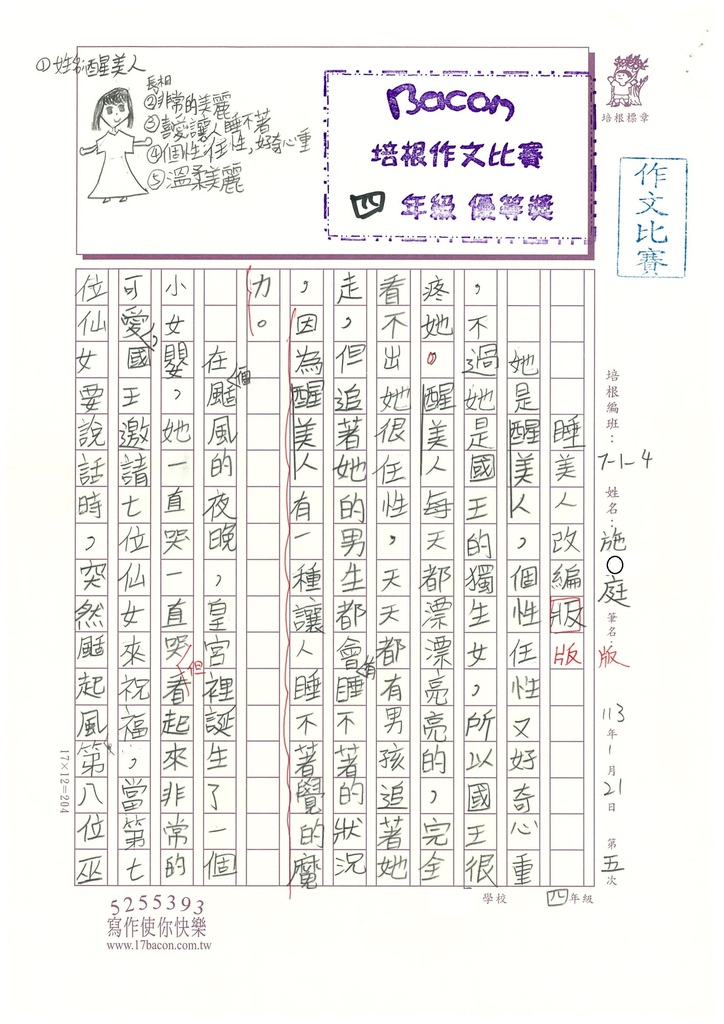 ①姓名:醒美人
長相
②非常的美麗
③喜愛讓人睡不著
④個性任性,好奇心重
⑤溫柔美麗
Bacon
培根作文比賽
四年級 優等獎
培根標章
作文比賽
培根編班:7-1-4
姓名:施○庭
筆名:
版
113年1月21日
第五次
睡美人改編版
版
她是醒美人,個性任性又好奇心重
,不過她是國王的獨生女,所以國王很
疼她。醒美人每天都漂漂亮亮的,完全
看不出她很任性,天天都有男孩追著她
走,但追著她的男生都會有睡不著的狀況
,因為醒美人有一種讓人睡不著覺的魔
力。
在個颳風的夜晚,皇宮裡誕生了一個
小女嬰,她一直哭一直哭但看起來非常的
可愛,國王邀請七位仙女來祝福,當第七
位仙女要說話時,突然颳起風第八位巫
17×12=204
5255393
寫作使你快樂
www.17bacon.com.tw
學校 四年級